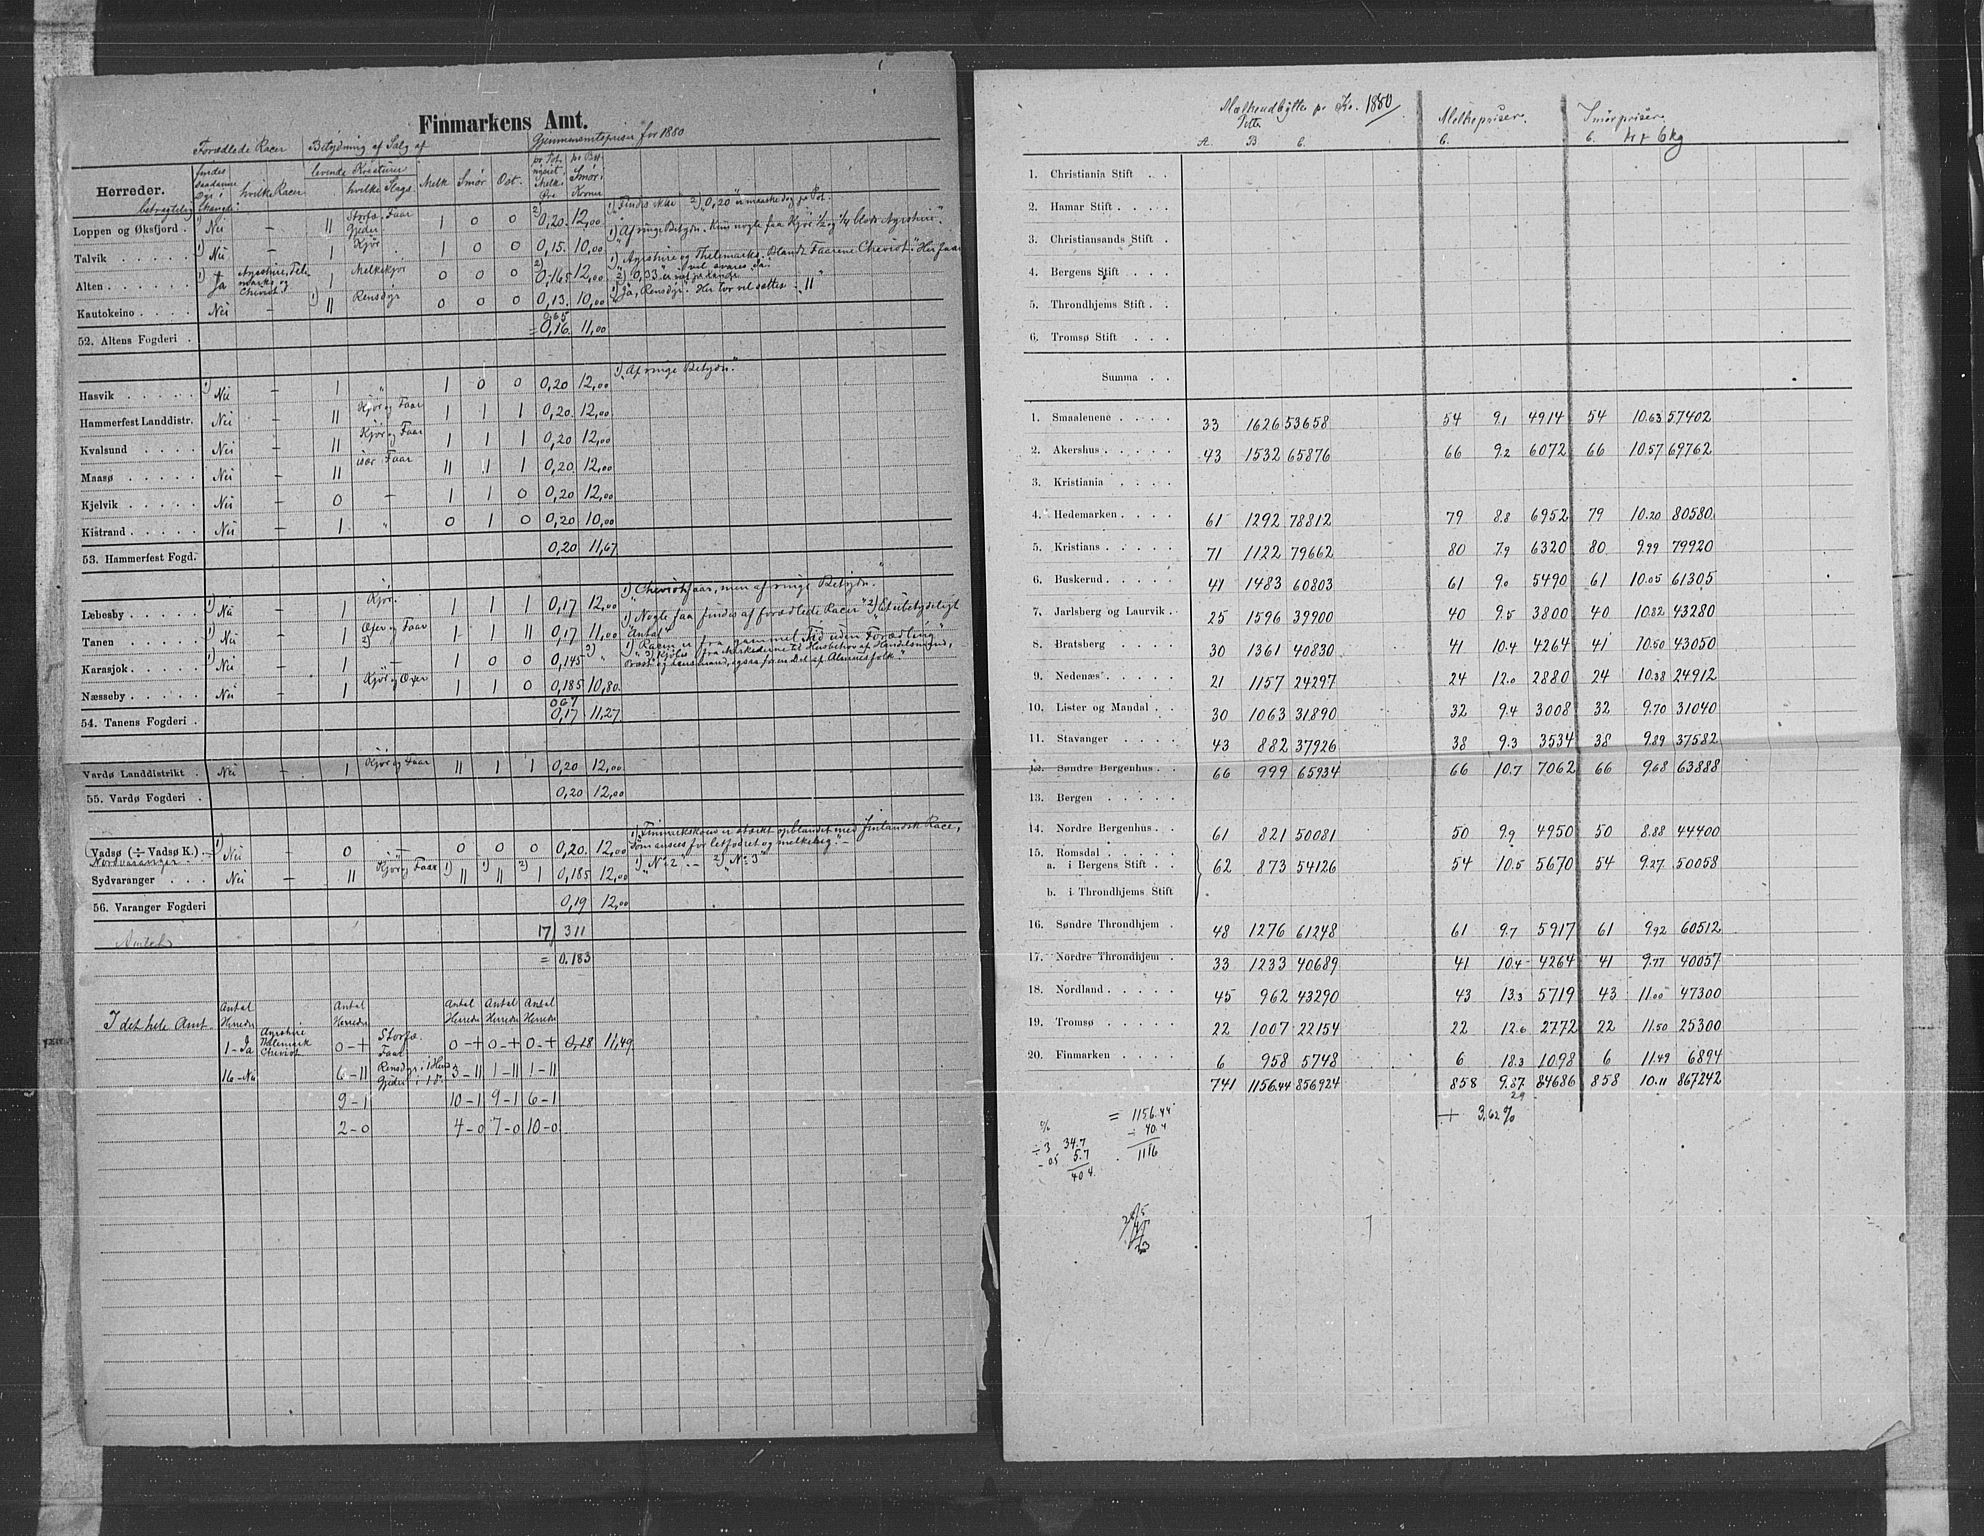 Finmarkens Amt.
Forædlede Racer Betydning af Salg af Gjennemsnitspriser for 1880
Herreder. findes saadanne hvilke Racer levende Kreaturer hvilke Slags. Melk Smør Ost. pr. Pot nysiet Melk Øre Smør Kroner
Loppen og Øksfjord . Nei – 11 Storfæ, Faar Gjeder 1 0 0 2) 0,20. 12,00
Talvik 1) Nei – 1 Kjør 1 0 0 0,15. 10,00
Alten 1) + Ja Ayrshire, Telemarks og Cheviot 1 Melkekjør 0 0 0 2) 0,165 12,00
Kautokeino Nei – 1) 11 Rensdyr 0 0 0 0,13. 10,00
0,65
52. Altens Fogderi . = 0,16. 11,00
Hasvik 1) Nei – 1 „ 1 0 0 0,20 12,00 1) „Af ringe Betydn."
Hammerfest Landdistr. Nei – 11 Kjør og Faar 1 1 1 0,20. 12,00
Kvalsund Nei – 11 Kjør og Faar 1 1 1 0,20 12,00
Maasø Nei – 11 især Faar 11 1 1 0,20 12,00
Kjelvik Nei – 0 – 1 1 0 0,20 12,00
Kistrand Nei – 1 „ 0 1 0 0,20 10,00
53. Hammerfest Fogd. 0,20 11,67
Læbesby 1) Nei – 1 Kjør. 1 1 1 0,17 12,00 1) „Cheviotfaar, men af ringe Betydn."
Tanen 1) Nei – 1 Oxer og Faar 2) 1 1 11 0,17 11,00 1) „Nogle faa findes af forædlede Racer" 2) „Et ubetydeligt Antal"
Karasjok 1) Nei – 1 – 1 0 0 0,145 2) „ 1) „Racen er fra gammel Tid uden Forædling"
Næsseby Nei – 1 Kjør og Oxer 1 1 0 0,185 10,80.
54. Tanens Fogderi . 0,17 11,27
Vardø Landdistrikt . Nei – 1 Kjør og Faar 11 1 1 0,20 12,00
55. Vardø Fogderi . 0,20 12,00
Vadsø (÷ Vadsø K.) 1) Nei – 0 – 0 0 0 0,20. 12,00 1) „Finmarkskoen er stærkt opblandet med finlandsk Race,
Nordvaranger som ansees for letfodret og melkerig."
Sydvaranger Nei – 11 Kjør og Faar 1) 11 1) 11 2) 1 0,185 12,00 1) „No 2" – 2) „No 3"
56. Varanger Fogderi 0,19 12,00
Amtet 17) 311
= 0.183
I det hele Amt. Antal Herreder Antal Herreder Antal Herreder Antal Herreder Antal Herreder
1 – Ja Ayrshire Thelemark Cheviot 0 – + Storfæ. Faar 0 – + 0 – + 0 – + 0,18 11,49
16 – Nei 6 – 11 Rensdyr i 1 Herred Gjeder i 1 3 – 11 1 – 11 1 – 11
9 – 1 10 – 1 9 – 1 6 – 1
2 – 0 4 – 0 7 – 0 10 – 0
Melkeudbytte pr Ko. 1880 Melkepriser. Smørpriser.
A. B C. C. C. kr 6 kg
1. Christiania Stift . .
2. Hamar Stift . . .
3. Christiansands Stift .
4. Bergens Stift . . .
5. Throndhjems Stift . .
6. Tromsø Stift . . .
Summa . .
1. Smaalenene 33 1626 53658 54 9.1 4914 54 10.63 57402
2. Akershus 43 1532 65876 66 9.2 6072 66 10.57 69762
3. Kristiania
4. Hedemarken 61 1292 78812 79 8.8 6952 79 10.20 80580
5. Kristians 71 1122 79662 80 7.9 6320 80 9.99 79920
6. Buskerud 41 1483 60803 61 9.0 5490 61 10.05 61305
7. Jarlsberg og Laurvik . 25 1596 39900 40 9.5 3800 40 10.82 43280
8. Bratsberg 30 1361 40830 41 10.4 4264 41 10.50 43050
9. Nedenæs 21 1157 24297 24 12.0 2880 24 10.38 24912
10. Lister og Mandal . . 30 1063 31890 32 9.4 3008 32 9.70 31040
11. Stavanger 43 882 37926 38 9.3 3534 38 9.89 37582
12. Søndre Bergenhus . . 66 999 65934 66 10.7 7062 66 9.68 63888
13. Bergen
14. Nordre Bergenhus . . 61 821 50081 50 9.9 4950 50 8.88 44400
15. Romsdal
a. i Bergens Stift . . 62 873 54126 54 10.5 5670 54 9.27 50058
b. i Throndhjems Stift
16. Søndre Throndhjem . 48 1276 61248 61 9.7 5917 61 9.92 60512
17. Nordre Throndhjem . 33 1233 40689 41 10.4 4264 41 9.77 40057
18. Nordland 45 962 43290 43 13.3 5719 43 11.00 47300
19. Tromsø 22 1007 22154 22 12.6 2772 22 11.50 25300
20. Finmarken 6 958 5748 6 18.3 1098 6 11.49 6894
741 1156.44 856924 858 9.87 84686 858 10.11 867242
29
+ 3,62 %
= 1156.44
÷ 40.4
1116
%
÷ 3 34.7
– 05 5.7
40 4.